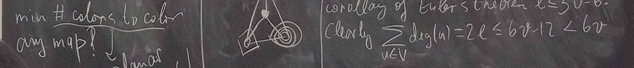 min # colors to color
any map?
planar
corollary of Euler's theorem e ≤ 3v-6.
Clearly ∑ deg(u) = 2e ≤ 6v-12 < 6v
u∈V